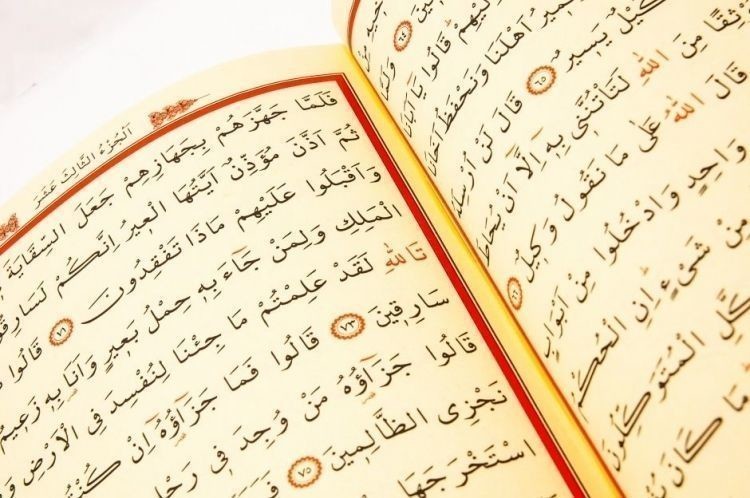 ٦٤
اِلَيْهِمْ قَالُوا يَٓا اَبَانَا
اَهْلَنَا وَنَحْفَظُ
كَيْلٌ يَسِيرٌ ٦٥ قَالَ لَنْ
مِنَ اللّٰهِ لَتَأْتُنَّنِي بِهٖٓ اِلَّٓا اَنْ يُحَاطَ
قَالَ اللّٰهُ عَلٰى مَا نَقُولُ وَكِيلٌ ٦٦
وَاحِدٍ وَادْخُلُوا مِنْ اَبْوَابٍ
مِنْ شَيْءٍ اِنِ الْحُكْمُ
الْمُتَوَكِّلُونَ
مَا كَانَ
اَلْجُزْءُ الثَّالِثَ عَشَرَ
فَلَمَّا جَهَّزَهُمْ بِجَهَازِهِمْ جَعَلَ السِّقَايَةَ
ثُمَّ اَذَّنَ مُؤَذِّنٌ اَيَّتُهَا الْعٖيرُ اِنَّكُمْ لَسَارِقُونَ
وَاَقْبَلُوا عَلَيْهِمْ مَاذَا تَفْقِدُونَ ٧١ قَالُوا
الْمَلِكِ وَلِمَنْ جَٓاءَ بِهٖ حِمْلُ بَعٖيرٍ وَاَنَا بِهٖ زَعٖيمٌ
تَاللّٰهِ لَقَدْ عَلِمْتُمْ مَا جِئْنَا لِنُفْسِدَ فِي الْاَرْضِ
سَارِقٖينَ ٧٣ قَالُوا فَمَا جَزَٓاؤُ۬هُٓ اِنْ كُنْتُمْ
قَالُوا جَزَٓاؤُ۬هُ مَنْ وُجِدَ فٖي
نَجْزِي الظَّالِمٖينَ ٧٥
اسْتَخْرَجَهَا